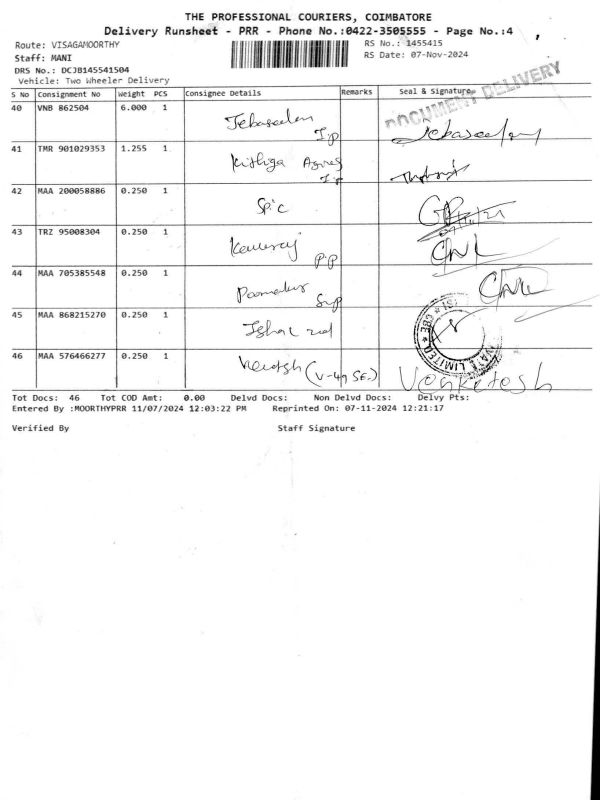 THE PROFESSIONAL COURIERS, COIMBATORE
Delivery Runsheet - PRR - Phone No.:0422-3505555 - Page No.:4
Route: VISAGAMOORTHY
RS No.: 1455415
Staff: MANI
RS Date: 07-Nov-2024
DRS No.: DCJB145541504
Vehicle: Two Wheeler Delivery
DOCUMENT DELIVERY
S No Consignment No Weight PCS Consignee Details Remarks Seal & Signature
40 VNB 862504 6.000 1 Jebaseelan
41 TMR 901029353 1.255 1 Agnes
42 MAA 200058886 0.250 1 Spic
43 TRZ 95008304 0.250 1 CNL
44 MAA 705385548 0.250 1
45 MAA 868215270 0.250 1
46 MAA 576466277 0.250 1 Venketesh
Tot Docs: 46 Tot COD Amt: 0.00 Delvd Docs: Non Delvd Docs: Delvy Pts:
Entered By :MOORTHYPRR 11/07/2024 12:03:22 PM Reprinted On: 07-11-2024 12:21:17
Verified By Staff Signature